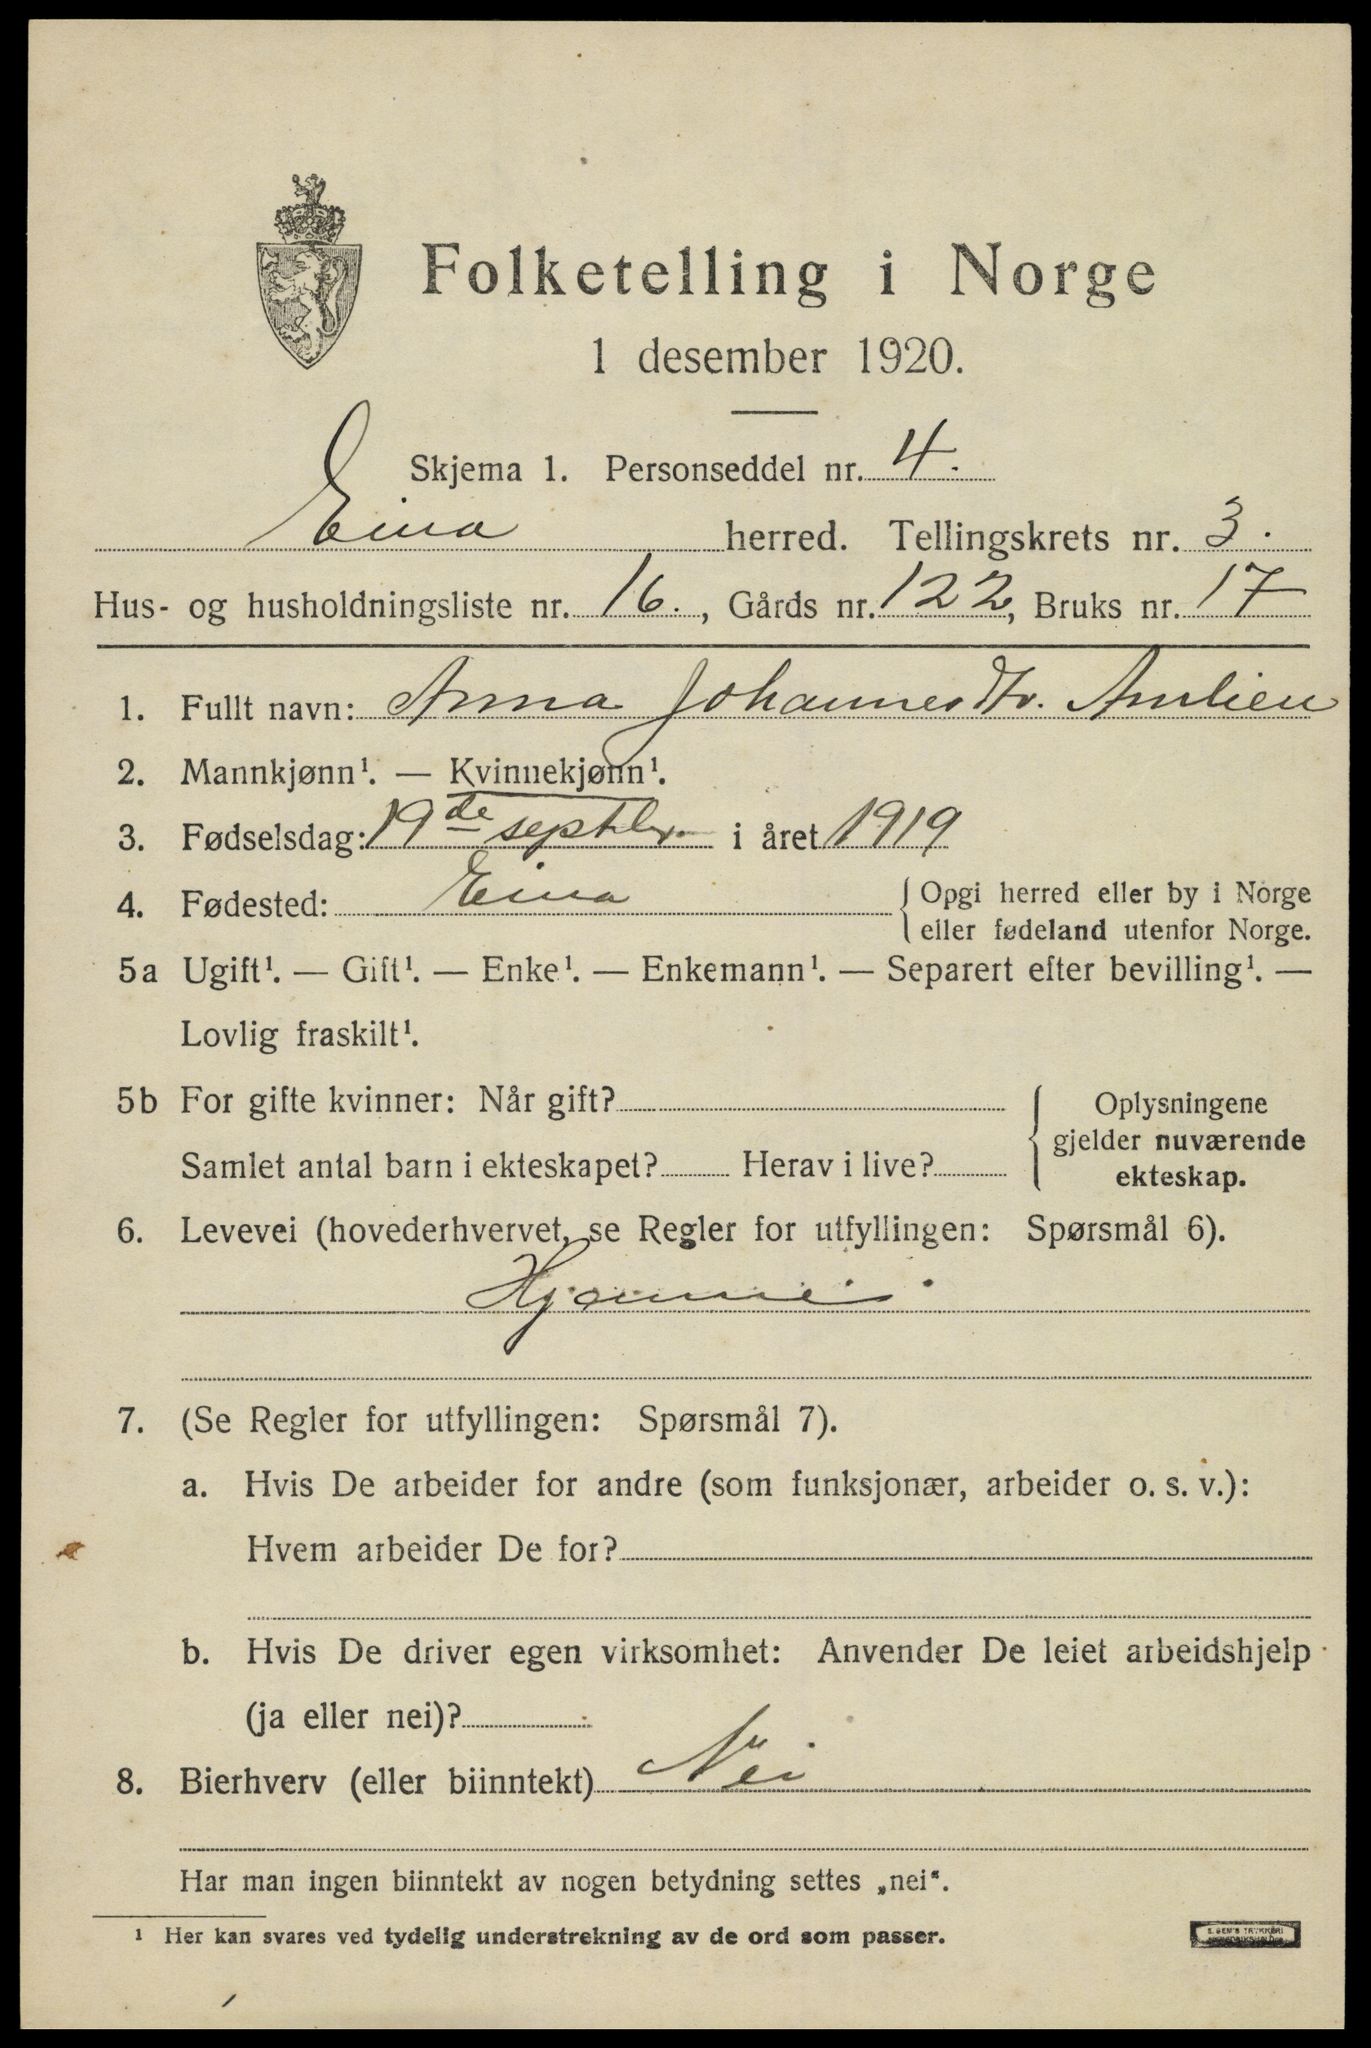 Folketelling i Norge
1 desember 1920.
Skjema 1. Personseddel nr. 4.
Eina herred. Tellingskrets nr. 3.
Hus- og husholdningsliste nr. 16., Gårds nr. 122, Bruks nr. 17
1. Fullt navn: Anna Johannesdtr. Amlien
2. Mannkjønn¹. — Kvinnekjønn¹.
3. Fødselsdag: 19de septbr. i året 1919
4. Fødested: Eina { Opgi herred eller by i Norge
eller fødeland utenfor Norge.
5a Ugift¹. — Gift¹. — Enke¹. — Enkemann¹. — Separert efter bevilling¹. —
Lovlig fraskilt¹.
5b For gifte kvinner: Når gift? { Oplysningene
gjelder nuværende
Samlet antal barn i ekteskapet? Herav i live? ekteskap.
6. Levevei (hovederhvervet, se Regler for utfyllingen: Spørsmål 6).
Hjemme
7. (Se Regler for utfyllingen: Spørsmål 7).
a. Hvis De arbeider for andre (som funksjonær, arbeider o. s. v.):
Hvem arbeider De for?
b. Hvis De driver egen virksomhet: Anvender De leiet arbeidshjelp
(ja eller nei)?
8. Bierhverv (eller biinntekt) Nei
Har man ingen biinntekt av nogen betydning settes „nei“.
¹ Her kan svares ved tydelig understrekning av de ord som passer.